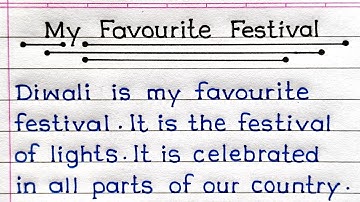 My Favourite Festival
Diwali is my favourite
festival. It is the festival
of lights. It is celebrated
in all parts of our country.